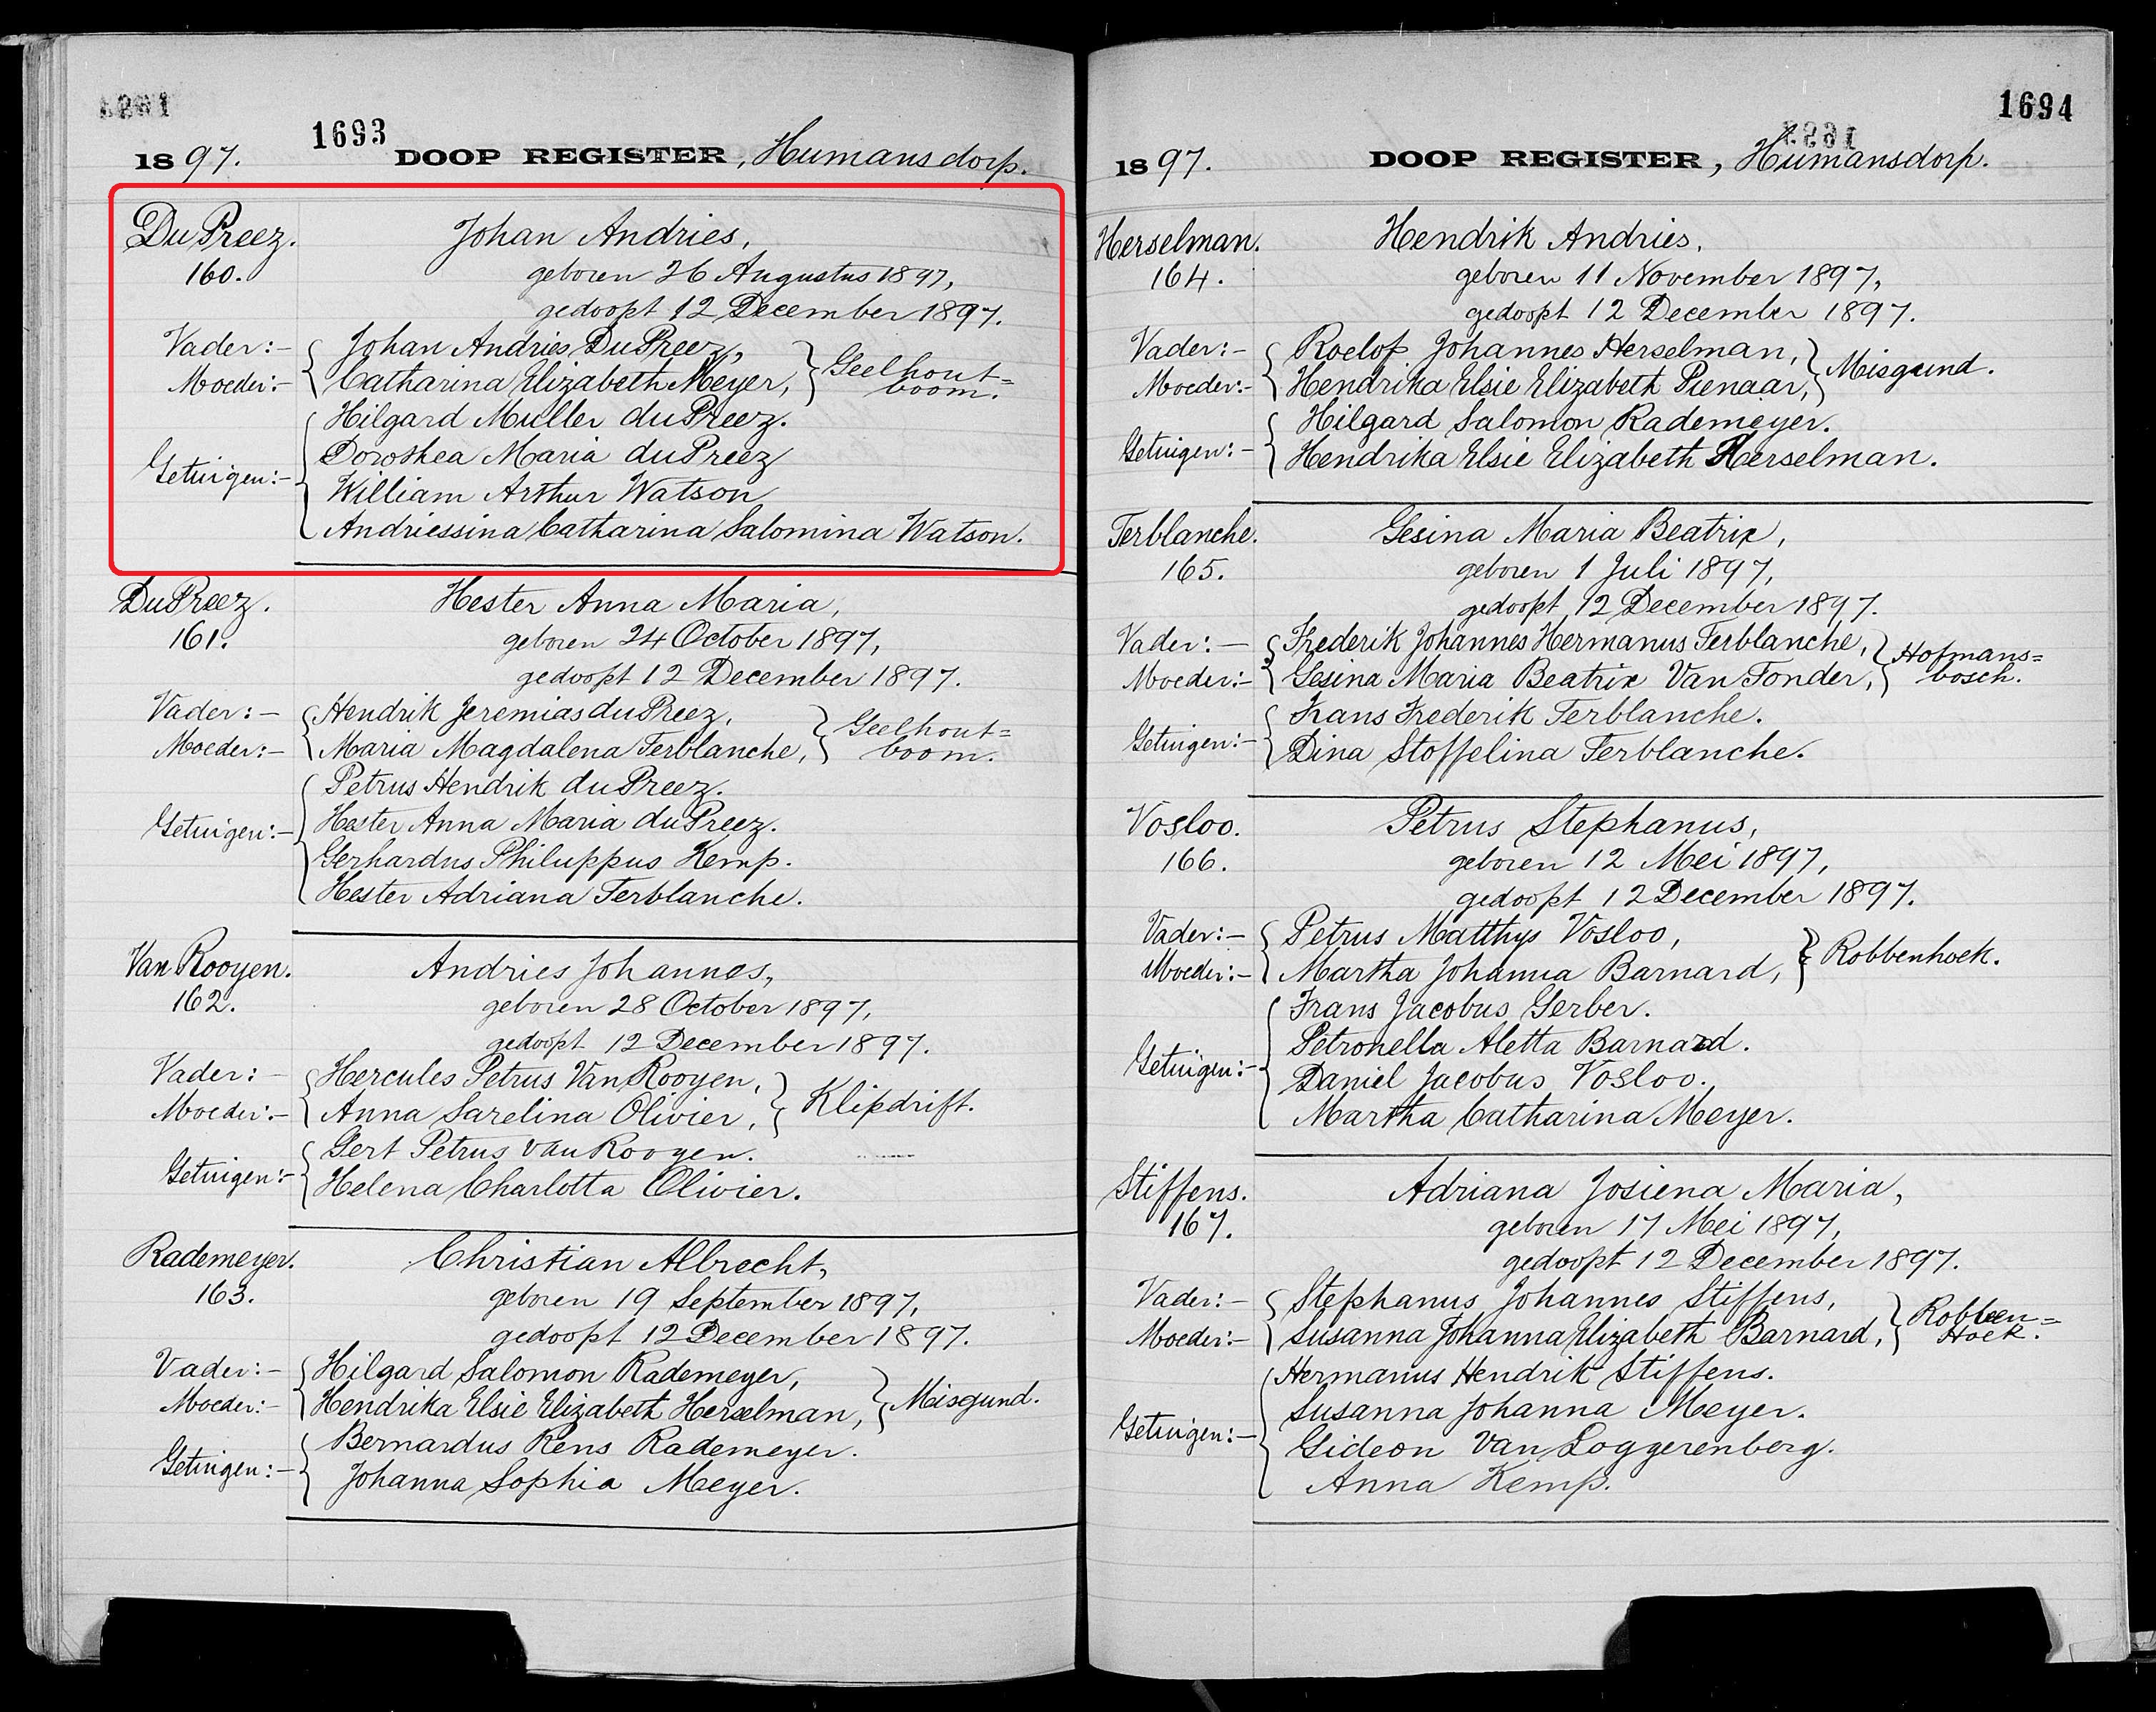 1693
1897. DOOP REGISTER, Humansdorp.
DuPreez. Johan Andries,
160. geboren 26 Augustus 1897,
gedoopt 12 December 1897.
Vader:- Johan Andries DuPreez,
Moeder:- Catharina Elizabeth Meyer, Geelhout=
boom.
Hilgard Muller duPreez.
Dorothea Maria duPreez
Getuigen:- William Arthur Watson
Andriessina Catharina Salomina Watson.
DuPreez. Hester Anna Maria,
161. geboren 24 October 1897,
gedoopt 12 December 1897.
Vader:- Hendrik Jeremias duPreez,
Moeder:- Maria Magdalena Terblanche, Geelhout=
boom.
Petrus Hendrik duPreez.
Getuigen:- Hester Anna Maria duPreez.
Gerhardus Philuppus Kemp.
Hester Adriana Terblanche.
Van Rooyen. Andries Johannes,
162. geboren 28 October 1897,
gedoopt 12 December 1897.
Vader:- Hercules Petrus Van Rooyen,
Moeder:- Anna Sarelina Olivier, Klipdrift.
Gert Petrus van Rooyen.
Getuigen:- Helena Charlotta Olivier.
Rademeyer. Christian Albrecht,
163. geboren 19 September 1897,
gedoopt 12 December 1897.
Vader:- Hilgard Salomon Rademeyer,
Moeder:- Hendrika Elsie Elizabeth Herselman, Misgund.
Bernardus Rens Rademeyer.
Getuigen:- Johanna Sophia Meyer.
1694
1897. DOOP REGISTER, Humansdorp.
Herselman. Hendrik Andries,
164. geboren 11 November 1897,
gedoopt 12 December 1897.
Vader:- Roelof Johannes Herselman,
Moeder:- Hendrika Elsie Elizabeth Pienaar, Misgund.
Hilgard Salomon Rademeyer.
Getuigen:- Hendrika Elsie Elizabeth Herselman.
Terblanche. Gesina Maria Beatrix,
165. geboren 1 Juli 1897,
gedoopt 12 December 1897.
Vader:- Frederik Johannes Hermanus Terblanche,
Moeder:- Gesina Maria Beatrix Van Tonder, Hofmans=
bosch.
Frans Frederik Terblanche.
Getuigen:- Dina Stoffelina Terblanche.
Vosloo. Petrus Stephanus,
166. geboren 12 Mei 1897,
gedoopt 12 December 1897.
Vader:- Petrus Matthys Vosloo,
Moeder:- Martha Johanna Barnard, Robbenhoek.
Frans Jacobus Gerber.
Petronella Aletta Barnard.
Getuigen:- Daniel Jacobus Vosloo.
Martha Catharina Meyer.
Stiffens. Adriana Josiena Maria,
167. geboren 17 Mei 1897,
gedoopt 12 December 1897.
Vader:- Stephanus Johannes Stiffens,
Moeder:- Susanna Johanna Elizabeth Barnard, Robben=
Hoek.
Hermanus Hendrik Stiffens.
Susanna Johanna Meyer.
Getuigen:- Gideon Van Loggerenberg.
Anna Kemp.